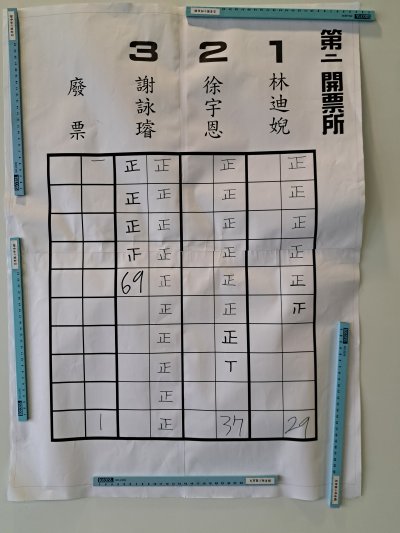 第二開票所
1
林迪婗
正
正
正
正
正
29
2
徐宇恩
正
正
正
正
正
正
正
丅
37
3
謝詠璿
正
正
正
正
正
正
正
正
正
正
正
正
正
69
廢票
一
1